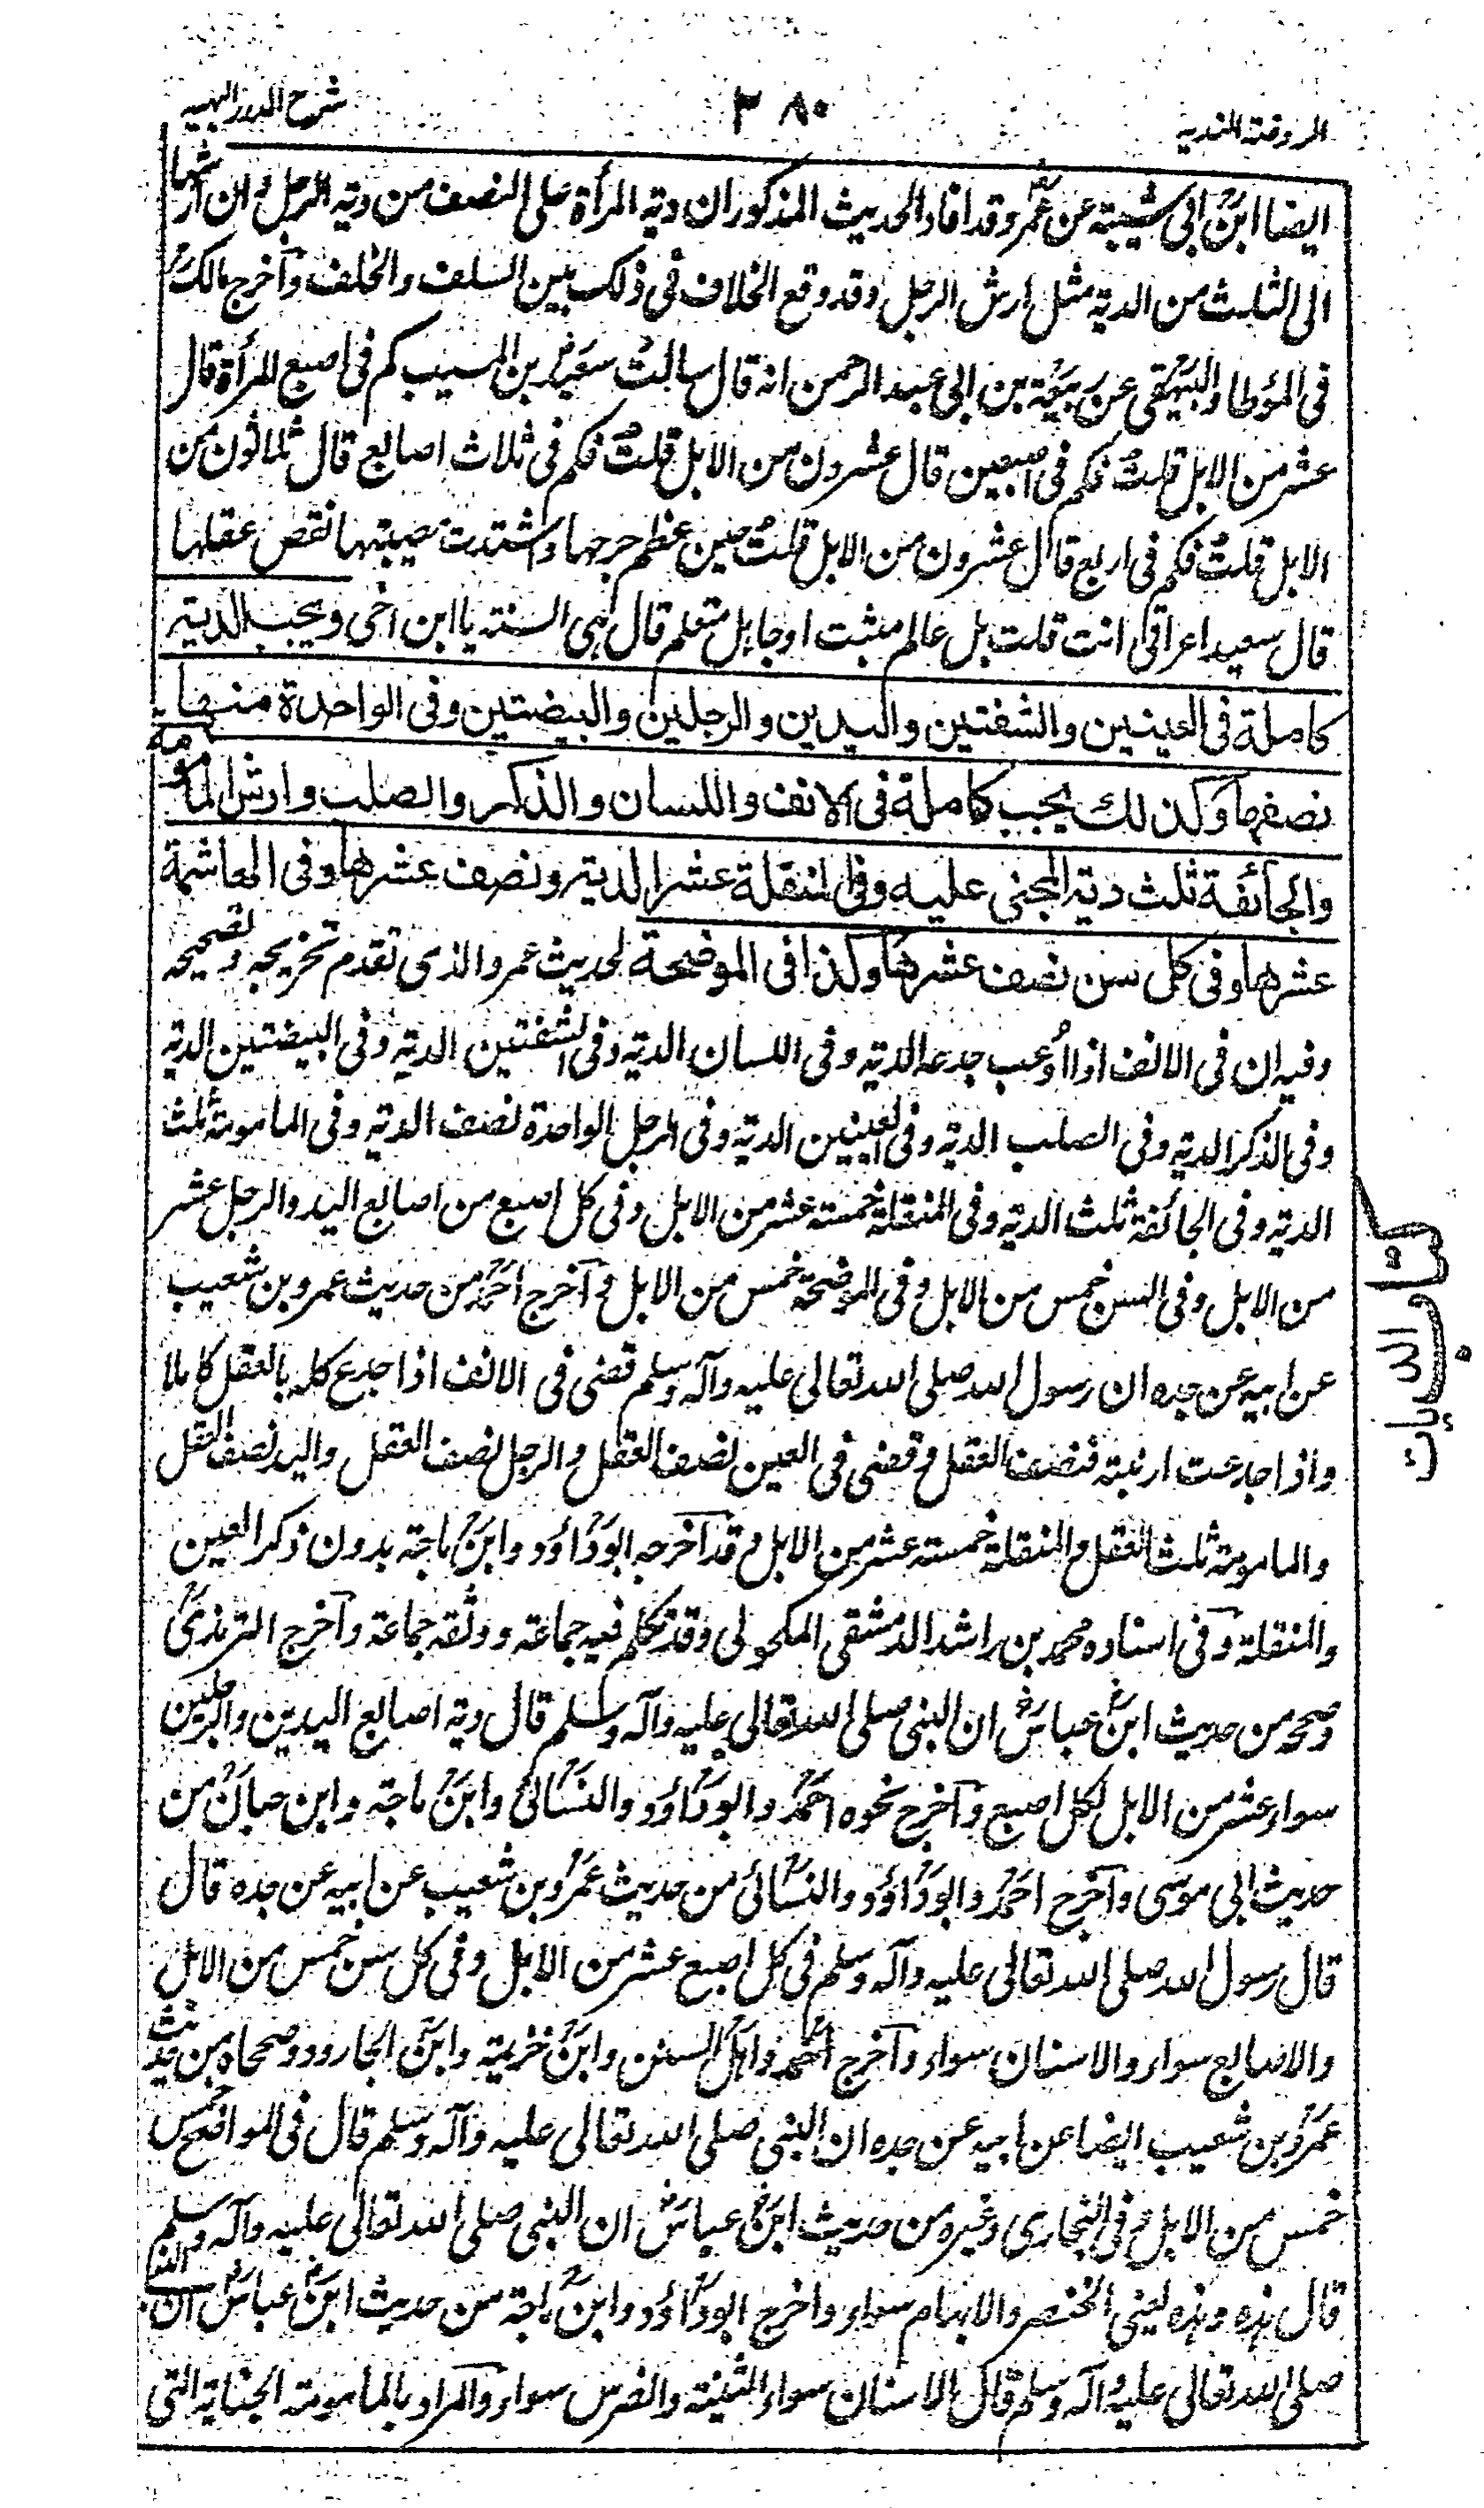 الروضة الندية
٣٨٠
شرح الدرر البهية
ايضا ابن ابى شيبة عن عمر وقد افاد الحديث المذكور ان دية المرأة على النصف من دية الرجل وان ارشها
الى الثلث من الدية مثل ارش الرجل وقد وقع الخلاف فى ذلك بين السلف والخلف وأخرج مالك
فى المؤطا والبيهقى عن ربيعة بن ابى عبد الرحمن انه قال سالت سعيد بن المسيب كم فى اصبع المرأة قال
عشر من الابل قلت فكم فى اصبعين قال عشرون من الابل قلت فكم فى ثلاث اصابع قال ثلاثون من
الابل قلت فكم فى اربع قال عشرون من الابل قلت حين عظم جرحها واشتدت مصيبتها نقص عقلها
قال سعيد اعراقى انت قلت بل عالم مثبت او جاهل متعلم قال هى السنة يا ابن اخى ويجب الدية
كاملة فى العينين والشفتين واليدين والرجلين والبيضتين وفى الواحدة منها
نصفها وكذلك يجب كاملة فى الانف واللسان والذكر والصلب وارش المأمومة
والجائفة ثلث دية المجنى عليه وفى المنقلة عشر الدية ونصف عشرها وفى الهاشمة
عشرها وفى كل سن نصف عشرها وكذا فى الموضحة لحديث عمرو الذى تقدم تخريجه وتصحيحه
وفيه ان فى الانف اذا أوعب جدعه الدية وفى اللسان الدية وفى الشفتين الدية وفى البيضتين الدية
وفى الذكر الدية وفى الصلب الدية وفى العينين الدية وفى الرجل الواحدة نصف الدية وفى المامومة ثلث
الدية وفى الجائفة ثلث الدية وفى المنقلة خمسة عشر من الابل وفى كل اصبع من اصابع اليد والرجل عشر
من الابل وفى السن خمس من الابل وفى الموضحة خمس من الابل وأخرج احمد من حديث عمرو بن شعيب
عن ابيه عن جده ان رسول الله صلى الله تعالى عليه وآله وسلم قضى فى الانف اذا جدع كله بالعقل كاملا
واذا جدعت ارنبته فنصف العقل وقضى فى العين نصف العقل والرجل نصف العقل واليد نصف العقل
والمامومة ثلث العقل والمنقلة خمسة عشر من الابل وقد أخرجه ابو داؤد وابن ماجة بدون ذكر العين
والمنقلة وفى اسناده محمد بن راشد الدمشقى المكحولى وقد تكلم فيه جماعة ووثقه جماعة وأخرج الترمذى
وصححه من حديث ابن عباس ان النبى صلى الله تعالى عليه وآله وسلم قال دية اصابع اليدين والرجلين
سواء عشر من الابل لكل اصبع وأخرج نحوه احمد وابو داؤد والنسائى وابن ماجة وابن حبان من
حديث ابى موسى وأخرج احمد وابو داؤد والنسائى من حديث عمرو بن شعيب عن ابيه عن جده قال
قال رسول الله صلى الله تعالى عليه وآله وسلم فى كل اصبع عشر من الابل وفى كل سن خمس من الابل
والاصابع سواء والاسنان سواء وأخرج احمد واهل السنن وابن خزيمة وابن الجارود وصححاه من حديث
عمرو بن شعيب ايضا عن ابيه عن جده ان النبى صلى الله تعالى عليه وآله وسلم قال فى المواضح خمس
خمس من الابل وفى البخارى وغيره من حديث ابن عباس ان النبى صلى الله تعالى عليه وآله وسلم
قال هذه وهذه يعنى الخنصر والابهام سواء واخرج ابو داؤد وابن ماجة من حديث ابن عباس ان النبى
صلى الله تعالى عليه وآله وسلم قال الاسنان سواء الثنية والضرس سواء والمراد بالمامومة الجناية التى